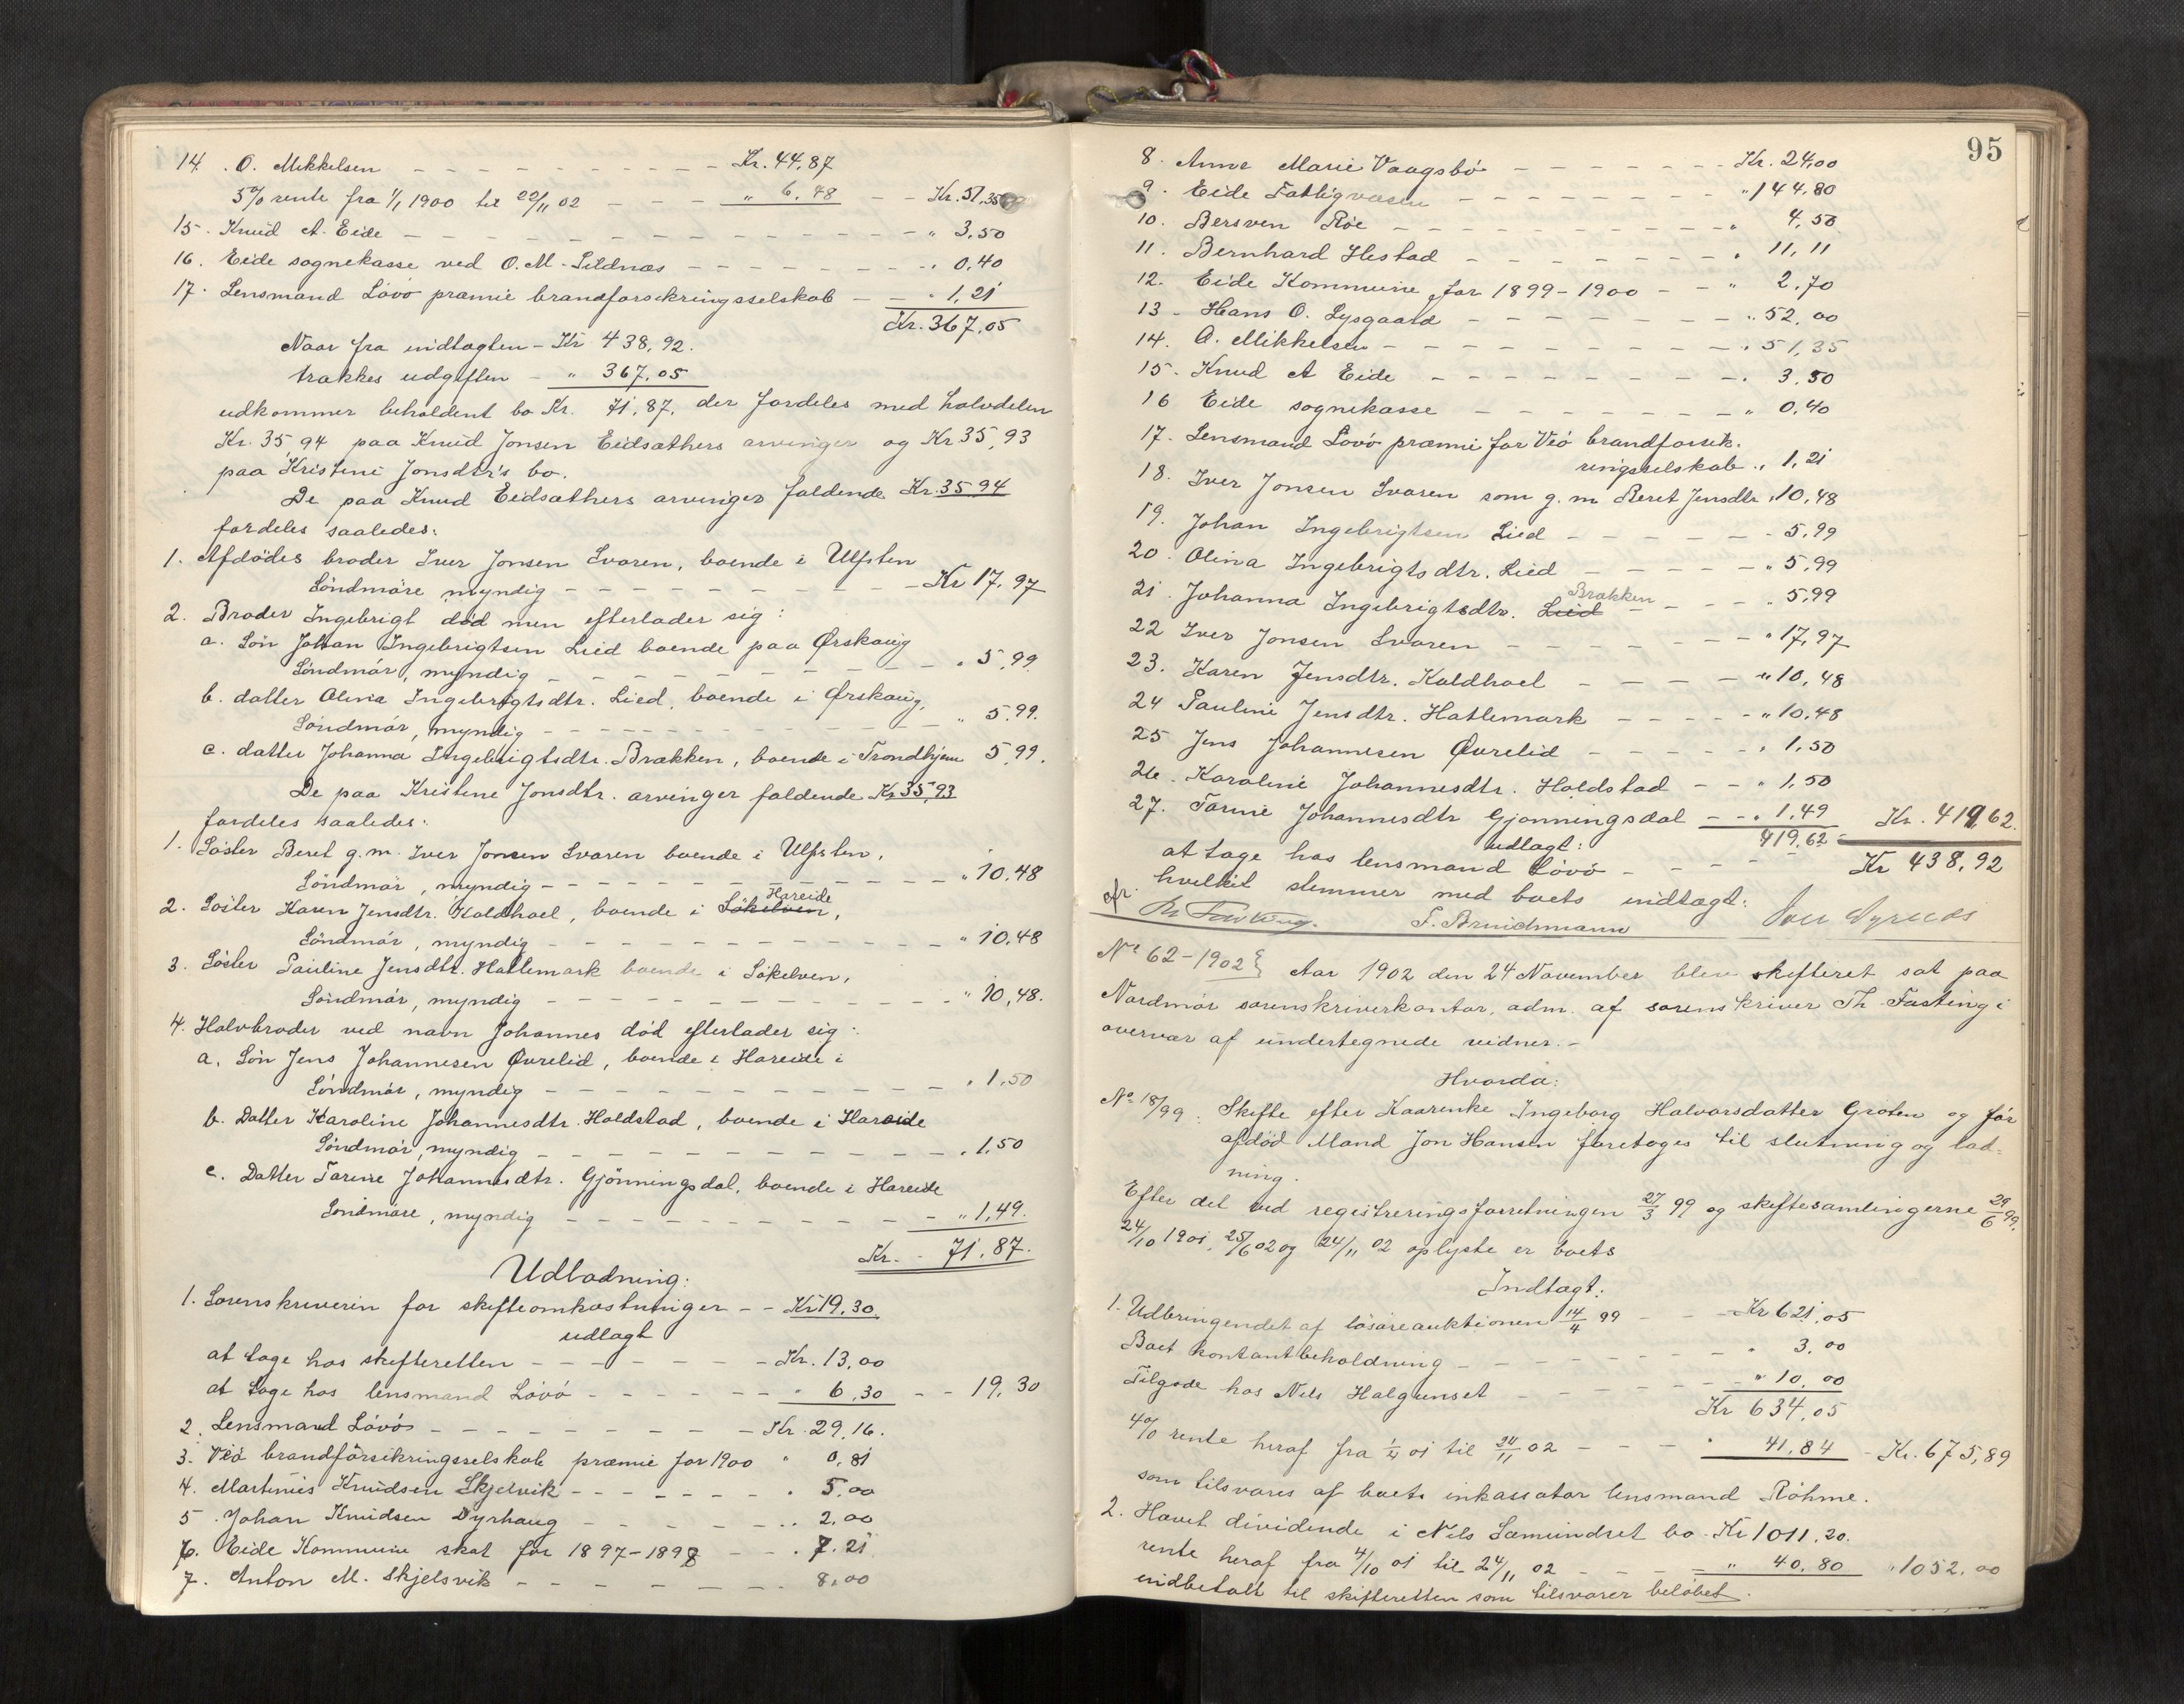 14. O. Mikkelsen - - - Kr. 44,87
5% rente fra 1/1 1900 til 22/11 02 - - - " 6,48 - - Kr. 51,35
15. Knud A. Eide - - - " 3,50
16. Eide sognekasse ved O. M. Sildnæs - - - " 0,40
17. Lensmand Lövö præmie brandforsikringsselskab - - " 1,21
Kr. 367,05
Naar fra indtægten - Kr 438,92.
trækkes udgiften - " 367,05
udkommer beholdent bo Kr. 71,87, der fordeles med halvdelen
Kr. 35,94 paa Knud Jonsen Eidsæthers arvinger og Kr 35,93
paa Kristine Jonsdtr's bo.
De paa Knud Eidsæthers arvinger faldende Kr. 35 94
fordeles saaledes:
1. Afdödes broder Iver Jonsen Svoren, boende i Ulfsten
Söndmöre myndig - - - Kr 17,97
2. Broder Ingebrigt död men efterlader sig:
a. Sön Johan Ingebrigtsen Lied boende paa Ørskoug
Söndmör, myndig - - - " 5,99
b. datter Olina Ingebrigtsdtr. Lied, boende i Ørskoug,
Söndmör, myndig - - - " 5.99.
c. datter Johanna Ingebrigtsdtr. Brækken, boende i Trondhjem 5,99.
De paa Kristine Jonsdtr. arvinger faldende Kr 35,93
fordeles saaledes:
1. Söster Beret g. m. Iver Jonsen Svoren boende i Ulfsten,
Söndmör, myndig - - - " 10.48
Hareide
2. Söster Karen Jensdtr. Koldhoel, boende i Sökelven,
Söndmör, myndig - - - " 10.48
3. Söster Pauline Jensdtr. Hatlemark boende i Sökelven,
Söndmör, myndig - - - " 10,48.
4. Halvbroder ved navn Johannes död efterlader sig:
a. Sön Jens Johannesen Øvrelid, boende i Hareide i
Söndmör, myndig - - - " 1,50
b. Datter Karoline Johannesdtr. Holdstad, boende i Hareide
Söndmör, myndig - - - " 1,50
c. Datter Tarine Johannesdtr. Gjönningsdal, boende i Hareide
Söndmöre, myndig - - - " 1,49.
Kr. - 71,87.
Udlodning:
1. Sorenskriverin for skifteomkostninger - - Kr 19,30
udlagt
at tage hos skifteretten - - - Kr. 13,00
at tage hos lensmand Lövö - - - " 6,30 - - 19,30
2. Lensmand Lövö - - - Kr. 29,16.
3. Veö brandförsikringsselskab præmie for 1900 " 0,81
4. Martinus Knudsen Skjelvik - - - " 5,00
5. Johan Knudsen Dyrhaug - - - " 2,00
6. Eide Kommune skat for 1897-1898 - - " 7.21
7. Anton M. Skjelsvik - - - 8,00
95
8. Anne Marie Vaagsbö - - - Kr. 24,00
9. Eide Fattigvæsen - - - " 144,80
10. Bersven Röe - - - " 4,50
11. Bernhard Hestad - - - " 11,11
12. Eide Kommune for 1899-1900 - - " 2,70
13. Hans O. Lysgaard - - - " 52,00
14. O. Mikkelsen - - - " 51,35
15. Knud A Eide - - - " 3,50
16 Eide sognekasse - - - " 0,40
17. Lensmand Lövö præmie for Veö brandforsik-
ringsselskab " 1,21
18. Iver Jonsen Svoren som g. m Beret Jensdtr " 10,48
19. Johan Ingebrigtsen Lied - - - 5,99
20. Olina Ingebrigtsdtr. Lied - - - " 5,99
Brækken
21. Johanna Ingebrigtsdtr. Lied - - - " 5,99
22 Iver Jonsen Svoren - - - " 17,97
23. Karen Jensdtr. Koldhoel - - - " 10,48
24 Pauline Jensdtr. Hatlemark - - - " 10,48
25 Jens Johannesen Øvrelid - - - " 1,50
26. Karoline Johannesdtr. Holdstad - - " 1,50
27. Tarine Johannesdtr Gjönningsdal - - " 1,49 Kr. 419,62.
udlagt: 419,62
at tage hos lensmand Lövö - - - Kr 438,92
hvilket stemmer med boets indtægt.
Th Fasting. F. Bruichmann
No 62-1902 Aar 1902 den 24 November blev skifteret sat paa
Nordmör sorenskriverkontor, adm. af sorenskriver Th. Fasting i
overvær af undertegnede vidner.-
Hvorda:
No 18/99. Skifte efter Kaarenke Ingeborg Halvorsdatter Gröten og för
afdöd Mand Jon Hansen foretoges til slutning og lod-
ning.
Efter det ved registreringsforretningen 27/3 99 og skiftesamlingerne 29/6 99,
24/10 1901, 25/6 02 og 24/11 02 oplyste er boets
Indtægt:
1. Udbringendet af lösöreauktionen 14/4 99 - - - Kr 621,05
Boet kontantbeholdning - - - " 3,00
Tilgode hos Nils Halgunset - - - " 10,00
Kr 634,05
4% rente heraf fra 1/4 01 til 24/11 02 - - - " 41,84 - Kr. 675,89
som tilsvares af boets inkassator lensmand Röhme.
2. Hævet dividende i Nils Sæmundset bo - Kr 1011,20.
rente heraf fra 4/10 01 til 24/11 02 - - - " 40,80 " 1052,00
indbetalt til skifteretten som tilsvarer belöbet.